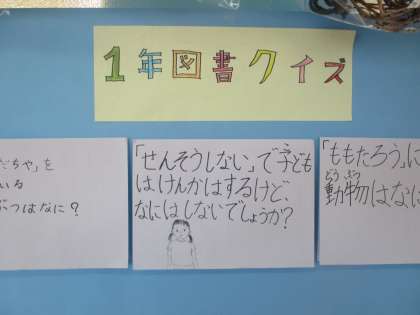 1年図書クイズ
ちゃ」を
いる
ぶつはなに?
「せんそうしない」で子ども
はけんかはするけど、
なにはしないでしょうか?
「ももたろう」に
どうぶつ
動物はなに